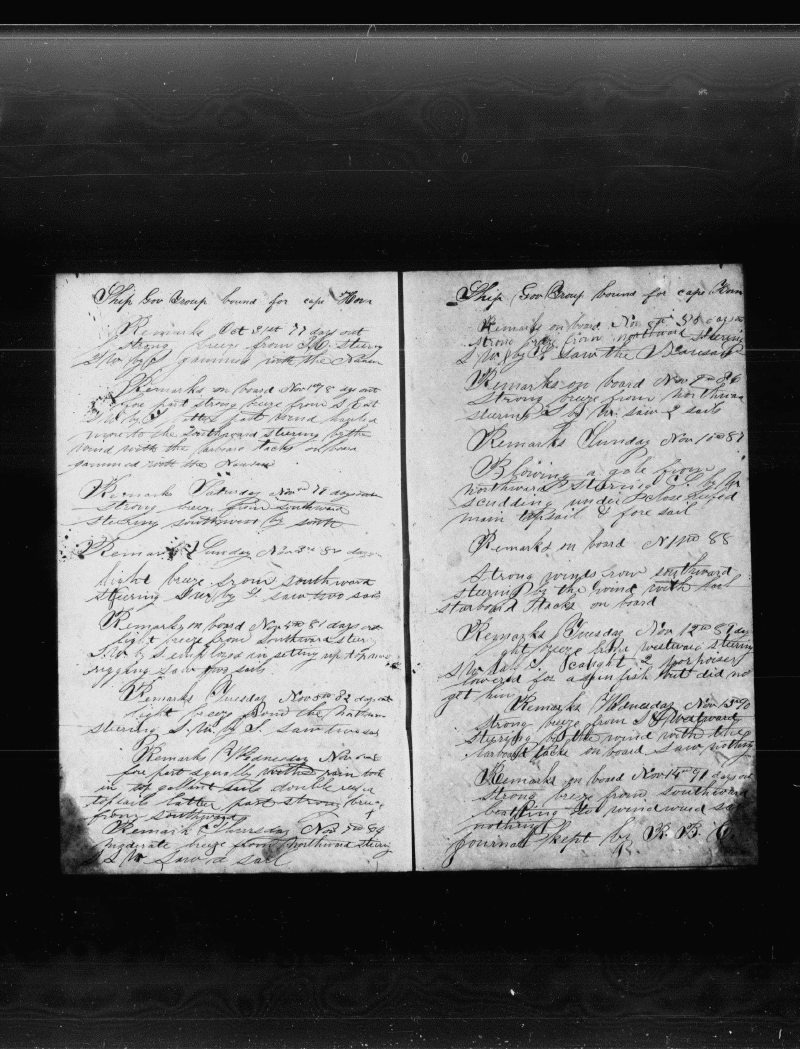 Ship Gov Troup bound for cape Horn
Remarks Oct 31st 77 days out
strong breeze from steering
S.W. by S. gammed with the
Remarks on board Nov 1st 78 days out
fore part strong breeze from S East
S.W. by S latter part wind hauled
more to the Southward steering by the
wind with the larboard tacks on board
gammed with the
Remarks Saturday Nov 2nd 79 days out
strong breeze from southward
steering southwest by south
Remarks Sunday Nov 3rd 80 days out
light breeze from southward
steering S.W. by S saw two sails
Remarks on board Nov 4th 81 days out
light breeze from southward steering
S.W. by S employed in setting up
rigging saw two sails
Remarks Tuesday Nov 5th 82 days out
light breeze from the
steering S. W. by S. saw two sails
Remarks Wednesday Nov
fore part squally with rain took
in top gallant sails double reef
topsails latter part strong breeze
from southward
Remark Thursday Nov 7th 84
moderate breeze from Northward steering
S.S.W. Saw a sail
Ship Gov Troup bound for cape Horn
Remarks on board Nov 8th 85 days out
strong breeze from northward steering
S.W. by S. saw the
Remarks on board Nov 9th 86
Strong breeze from northward
steering S by W. saw 2 sails
Remarks Sunday Nov 10th 87
Blowing a gale from
northward steering S. by W
scudding under close reefed
main topsail & fore sail
Remarks on board N 11th 88
Strong winds from southward
steering by the wind with
starboard tacks on board
Remarks Tuesday Nov 12th 89 days
light breeze from the westward steering
S.W. by S. Caught 2 porpoises
lowered for a spinfish but did not
get him
Remarks Wednesday Nov 13th 90
strong breeze from S Westward
steering by the wind with the
larboard tacks on board saw nothing
Remarks on board Nov 14th 91 days out
strong breeze from southward
beating to windward saw
nothing
journal kept by R. B.